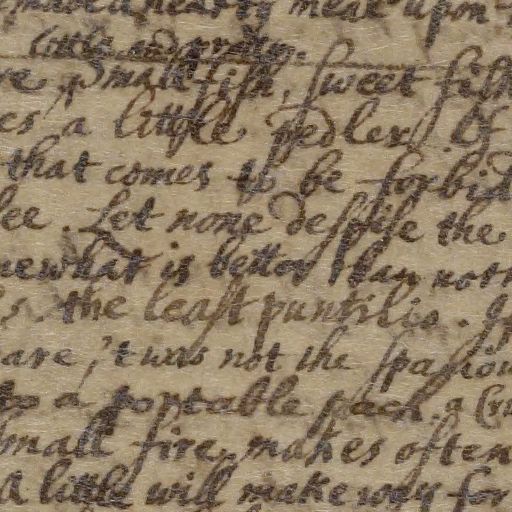 hearty meat upon
Little and pretty.
Small fish, sweet fish
a little pedler. Of
that comes to be forbid
lee. Let none despise the
mewhat is better than not
the least puntilio. If
are, 't was not the spatiou
to a portable pack, a
small fire, makes often
A little will make way for